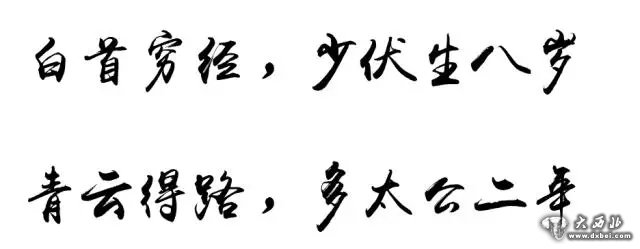 白首穷经，少伏生八岁
青云得路，多太公二年
大西北
www.dxbei.com